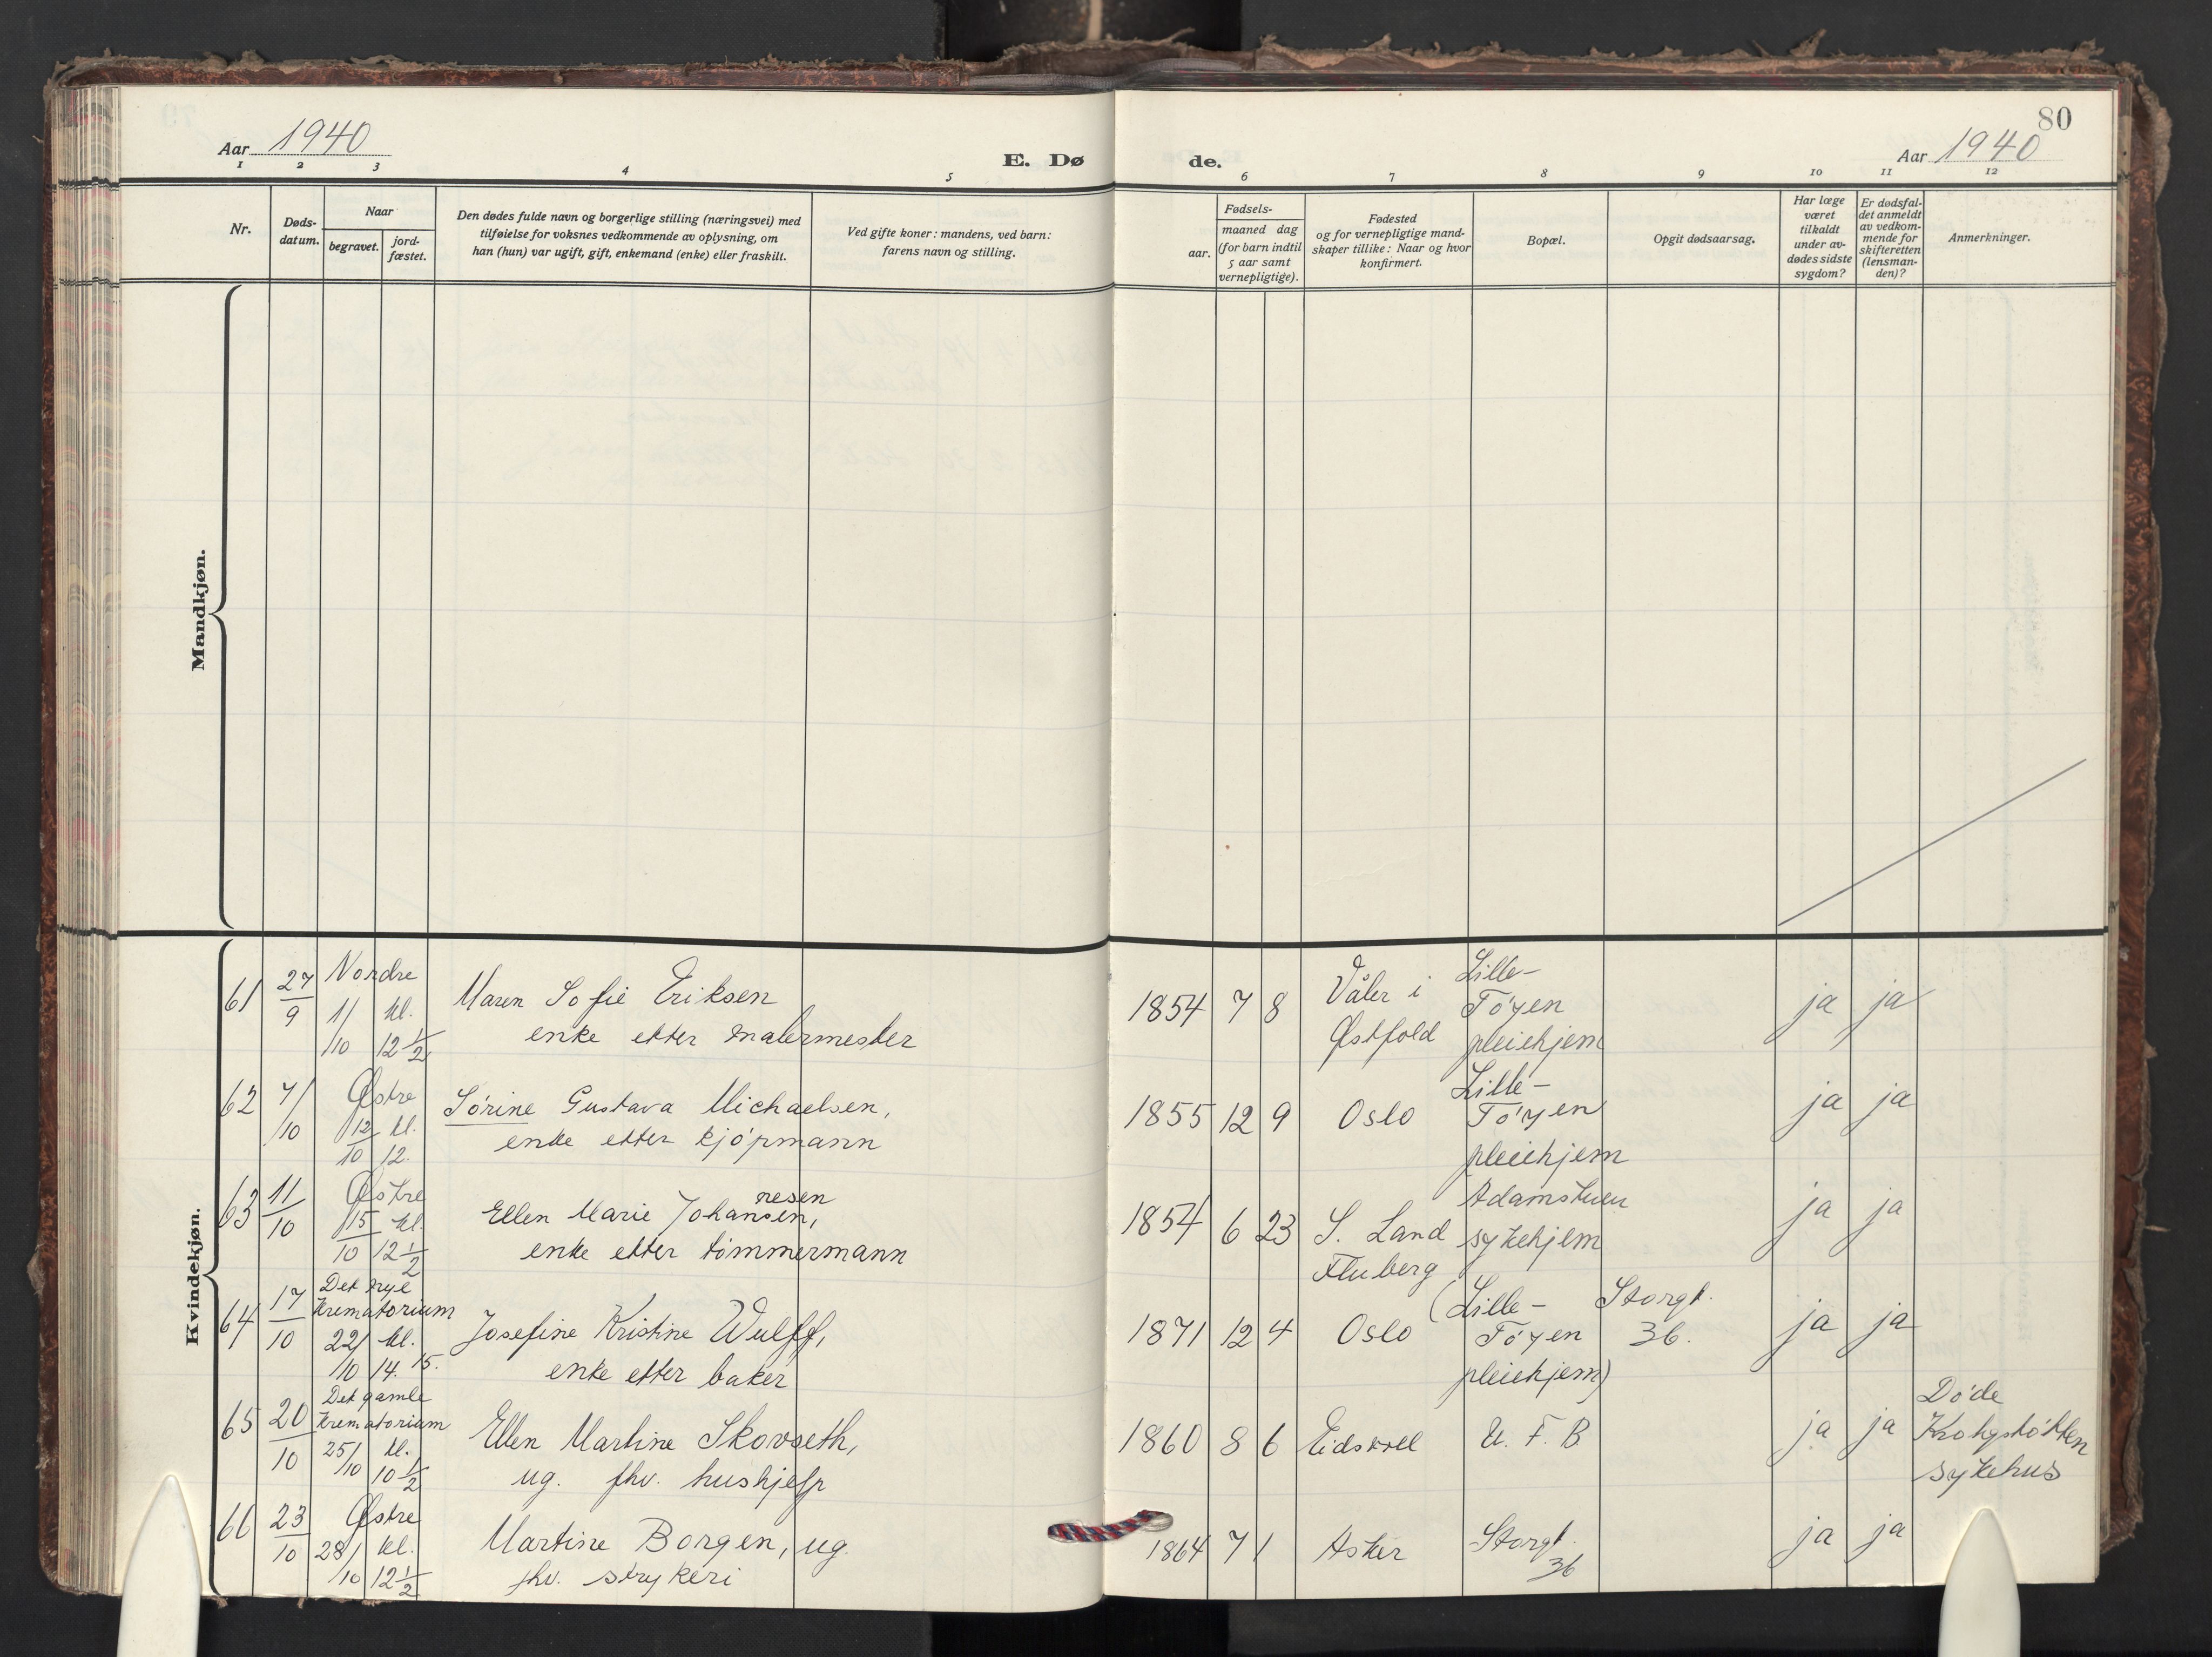 80
Aar 1940
E. Dø
de.
Aar 1940
1 2 3 4 5
6 7 8 9 10 11 12
Nr.
Døds-
datum.
Naar
begravet.
jord-
fæstet.
Den dødes fulde navn og borgerlige stilling (næringsvei) med
tilføielse for voksnes vedkommende av oplysning, om
han (hun) var ugift, gift, enkemand (enke) eller fraskilt.
Ved gifte koner: mandens, ved barn:
farens navn og stilling.
aar.
Fødsels-
maaned dag
(for barn indtil
5 aar samt
vernepligtige).
Fødested
og for vernepligtige mand-
skaper tillike: Naar og hvor
konfirmert.
Bopæl.
Opgit dødsaarsag.
Har læge
været
tilkaldt
under av-
dødes sidste
sygdom?
Er dødsfal-
det anmeldt
av vedkom-
mende for
skifteretten
(lensman-
den)?
Anmerkninger.
Mandkjøn.
Kvindekjøn.
61
27/9
Nordre
1/10 kl. 12 1/2
Maren Sofie Eriksen
enke etter malermester
1854 7 8
Våler i
Østfold
Lille-
Tøyen
pleiehjem
ja ja
62
7/10
Østre
12/10 kl. 12.
Sørine Gustava Michaelsen,
enke etter kjøpmann
1855 12 9
Oslo
Lille-
Tøyen
pleiehjem
ja ja
63
11/10
Østre
15/10 kl. 12 1/2
nesen
Ellen Marie Johansen,
enke etter tømmermann
1854 6 23
S. Land
Fluberg
Adamstuen
sykehjem
ja ja
64
17/10
Det nye
Krematorium
22/10 kl. 14.15.
Josefine Kristine Wulff,
enke etter baker
1871 12 4
Oslo
(Lille-
Tøyen
pleiehjem)
Storgt.
36.
ja ja
65
20/10
Det gamle
Krematorium
25/10 kl. 10 1/2
Ellen Martine Skovseth,
ug. fhv. hushjelp
1860 8 6
Eidsvoll
U. F. B.
ja ja
Døde
Krohgstøtten
sykehus
66
23/10
Østre
28/10 kl. 12 1/2
Martine Borgen, ug.
fhv. strykeri
1864 7 1
Asker
Storgt.
36
ja ja